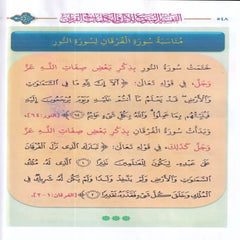 ٥٤٨
مناسبة سورة الفرقان لسورة النور
خُتمت سورة النور بذكر بعض صفات الله عز
وجل، في قوله تعالى: ﴿أَلَا إِنَّ لِلَّهِ مَا فِي السَّمَاوَاتِ
وَالْأَرْضِ قَدْ يَعْلَمُ مَا أَنتُمْ عَلَيْهِ وَيَوْمَ يُرْجَعُونَ إِلَيْهِ
فَيُنَبِّئُهُم بِمَا عَمِلُوا وَاللَّهُ بِكُلِّ شَيْءٍ عَلِيمٌ﴾ [النور: ٦٤]
وبدأت سورة الفرقان بذكر بعض صفات الله عز
وجل كذلك، في قوله تعالى: ﴿تَبَارَكَ الَّذِي نَزَّلَ الْفُرْقَانَ
عَلَى عَبْدِهِ لِيَكُونَ لِلْعَالَمِينَ نَذِيرًا ۝ الَّذِي لَهُ مُلْكُ
السَّمَاوَاتِ وَالْأَرْضِ وَلَمْ يَتَّخِذْ وَلَدًا وَلَمْ يَكُن لَّهُ شَرِيكٌ فِي
الْمُلْكِ وَخَلَقَ كُلَّ شَيْءٍ فَقَدَّرَهُ تَقْدِيرًا﴾ [الفرقان: ١-٢].